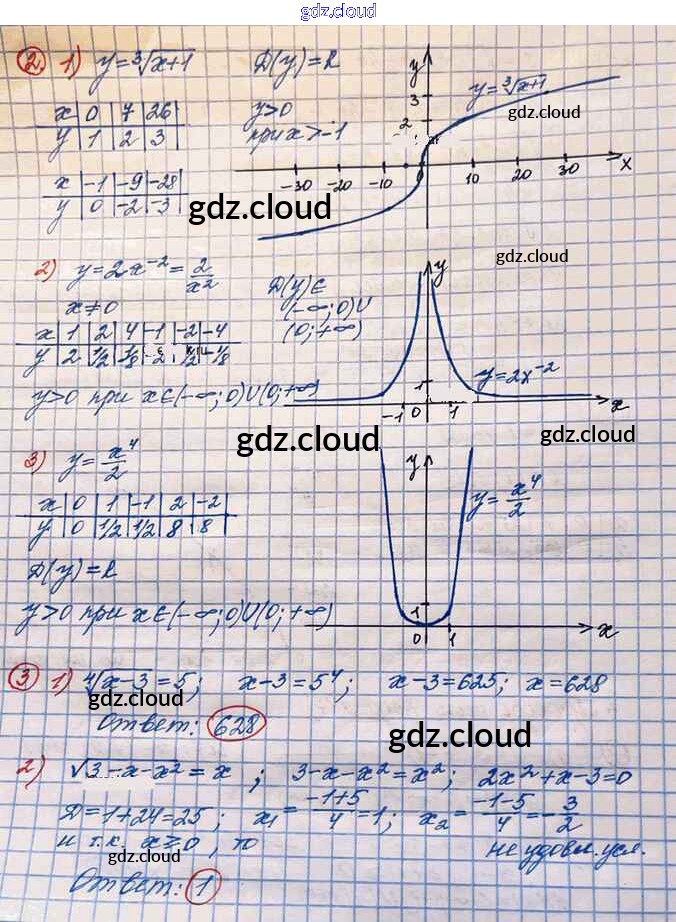 gdz.cloud
2. 1) y=∛(x+1) D(y)=R
x 0 7 26
y 1 2 3
y>0
при x>-1
x -1 -9 -28
y 0 -2 -3
y 3 2 y=∛(x+1)
-30 -20 -10 10 20 30 x
gdz.cloud
gdz.cloud
2) y=2x⁻²=2/x²
x≠0
D(y)∈
(-∞;0)∪
(0;+∞)
x 1 2 4 -1 -2 -4
y 2 1/2 1/8
y>0 при x∈(-∞;0)∪(0;+∞)
y 1 y=2x⁻²
-1 0 1 x
gdz.cloud
gdz.cloud
gdz.cloud
3) y=x⁴/2
x 0 1 -1 2 -2
y 0 1/2 1/2 8 8
D(y)=R
y>0 при x∈(-∞;0)∪(0;+∞)
y y=x⁴/2
1
0 1 x
3 1) ⁴√(x-3)=5; x-3=5⁴; x-3=625; x=628
gdz.cloud
Ответ: 628
gdz.cloud
2) √3-x-x²=x; 3-x-x²=x²; 2x²+x-3=0
D=1+24=25; x₁=(-1+5)/4=1; x₂=(-1-5)/4=-3/2
и т.к. x≥0, то не удовл. усл.
gdz.cloud
gdz.cloud
Ответ: 1